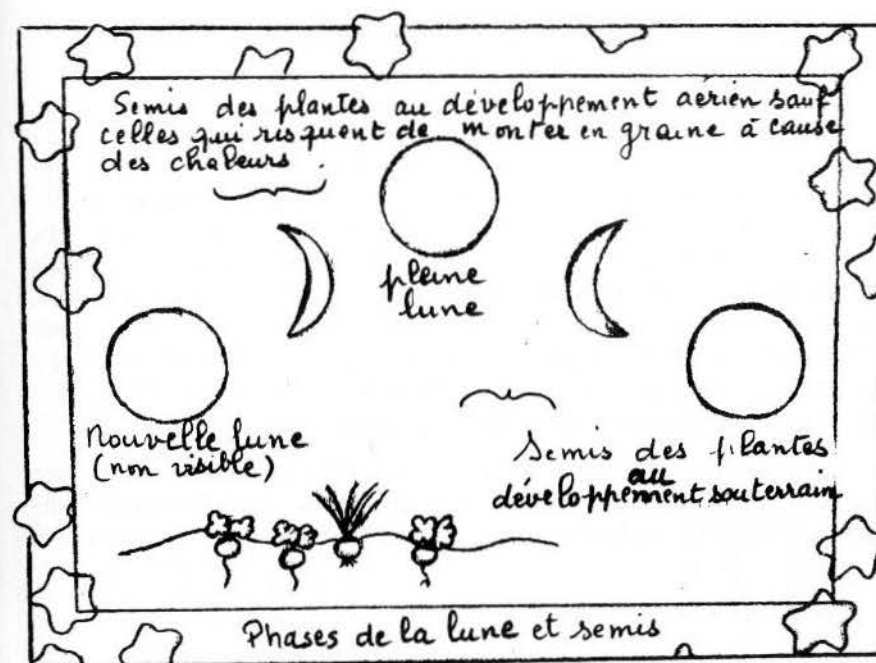 Semis des plantes au développement aérien sauf
celles qui risquent de monter en graine à cause
des chaleurs.
pleine
lune
Nouvelle lune
(non visible)
Semis des plantes
au
développement souterrain
Phases de la lune et semis